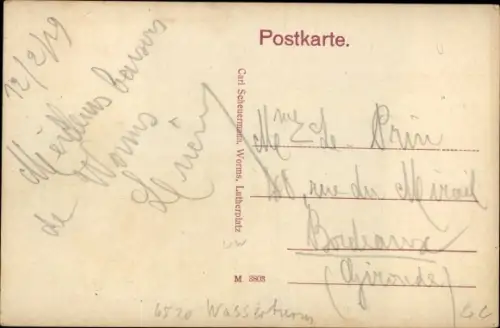 Postkarte.
12/2/19
Meilleurs baisers
de Worms
Lucien
Carl Scheuermann, Worms, Lutherplatz
Mme Le Prin
48, rue du Mirail
Bordeaux
(Gironde)
M 3803
6520 Wasserturm